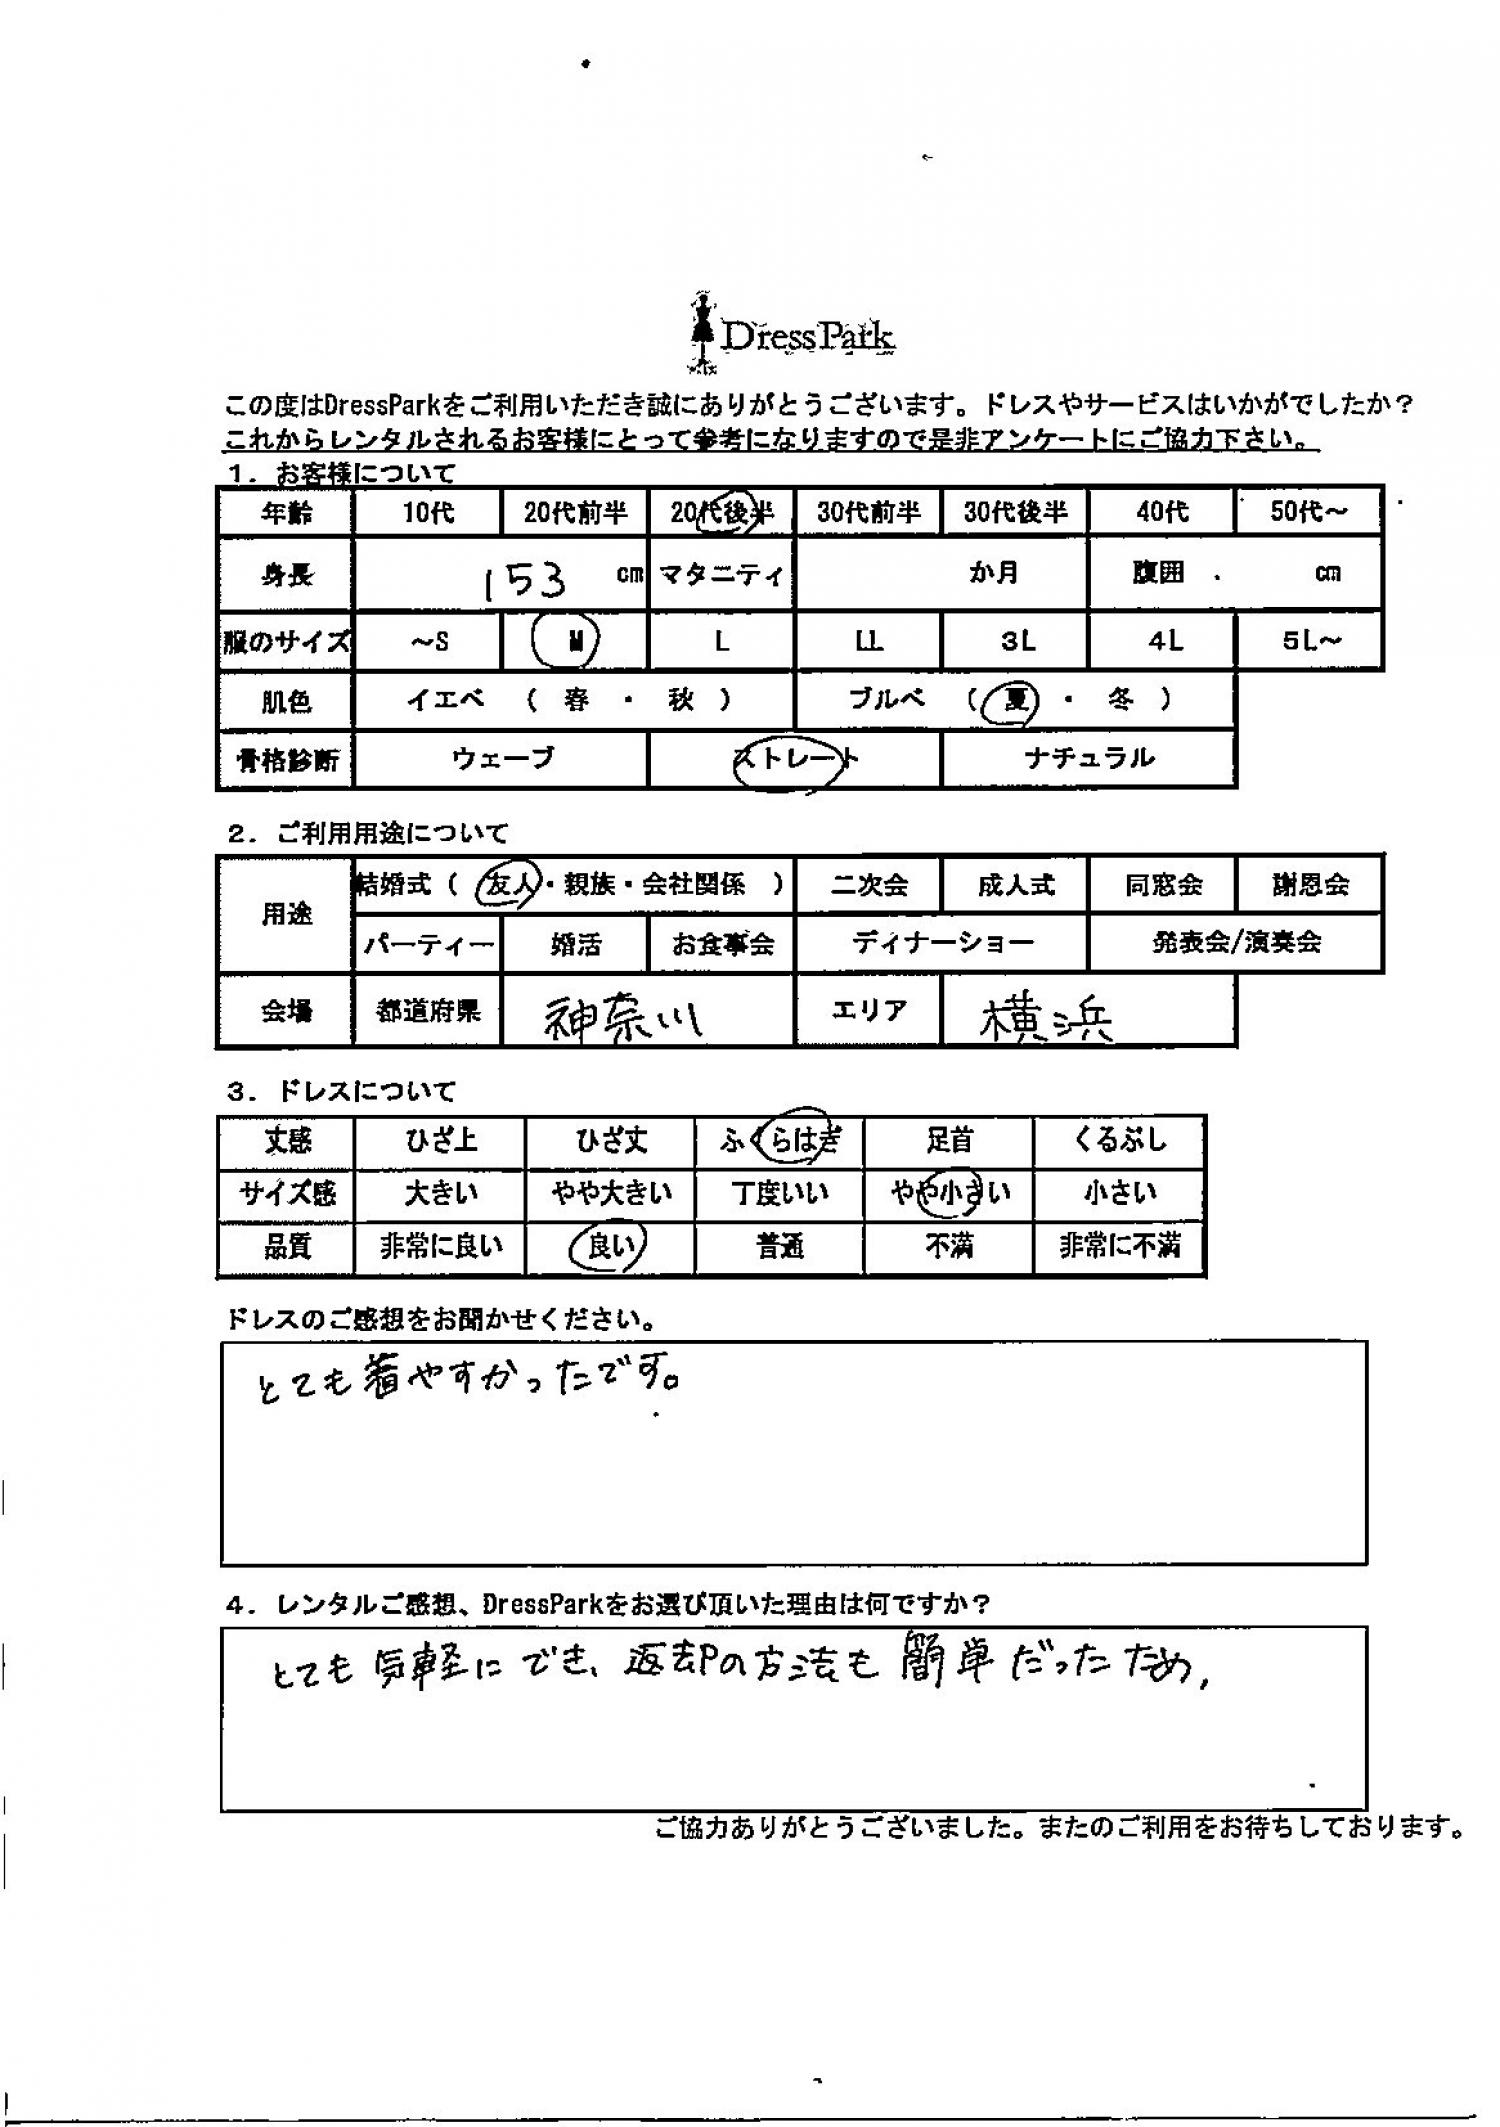 DressPark
この度はDressParkをご利用いただき誠にありがとうございます。ドレスやサービスはいかがでしたか？
これからレンタルされるお客様にとって参考になりますので是非アンケートにご協力下さい。
1. お客様について
年齢 10代 20代前半 20代後半 30代前半 30代後半 40代 50代～
身長 153 cm マタニティ か月 腹囲 cm
服のサイズ ～S M L LL 3L 4L 5L～
肌色 イエベ （ 春 ・ 秋 ） ブルベ （ 夏 ・ 冬 ）
骨格診断 ウェーブ ストレート ナチュラル
2. ご利用用途について
用途 結婚式（ 友人・親族・会社関係 ） 二次会 成人式 同窓会 謝恩会
パーティー 婚活 お食事会 ディナーショー 発表会/演奏会
会場 都道府県 神奈川 エリア 横浜
3. ドレスについて
丈感 ひざ上 ひざ丈 ふくらはぎ 足首 くるぶし
サイズ感 大きい やや大きい 丁度いい やや小さい 小さい
品質 非常に良い 良い 普通 不満 非常に不満
ドレスのご感想をお聞かせください。
とても着やすかったです。
4. レンタルご感想、DressParkをお選び頂いた理由は何ですか？
とても気軽にでき、返却の方法も簡単だったため。
ご協力ありがとうございました。またのご利用をお待ちしております。